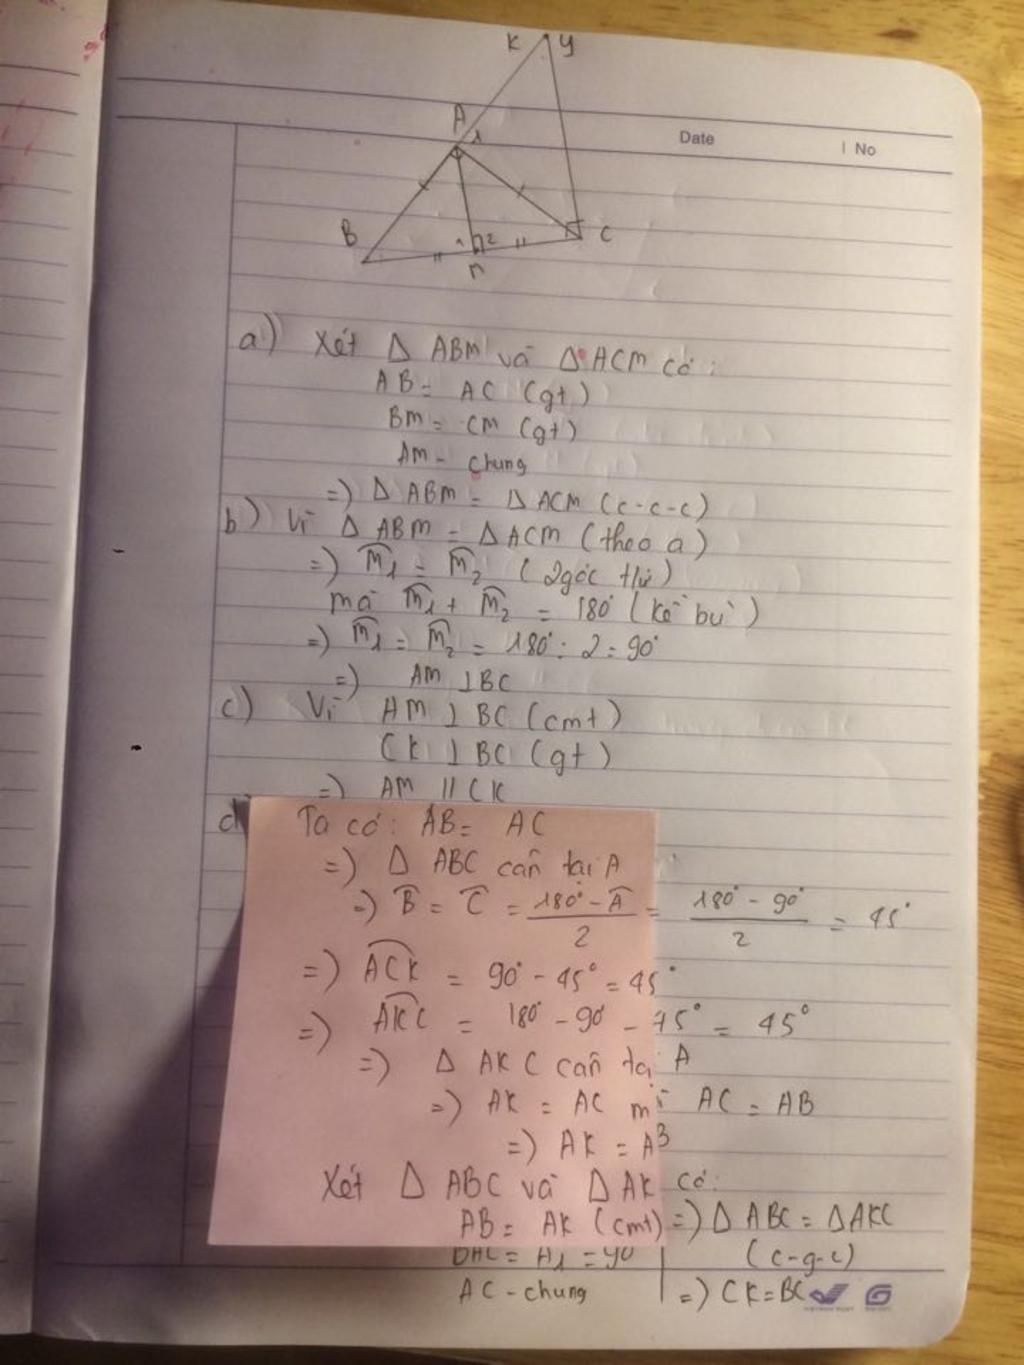 K y
A 1
Date | No
B 1 2 C
M
a) Xét Δ ABM và Δ ACM có:
AB = AC (gt)
BM = CM (gt)
AM - chung
=) Δ ABM = Δ ACM (c-c-c)
b) Vì Δ ABM = Δ ACM (theo a)
=) M̂1 = M̂2 (2 góc t/ư)
mà M̂1 + M̂2 = 180° (kề bù)
=) M̂1 = M̂2 = 180° : 2 = 90°
=) AM ⊥ BC
c) Vì AM ⊥ BC (cmt)
CK ⊥ BC (gt)
=) AM // CK
d Ta có: AB = AC
=) Δ ABC cân tại A
=) B̂ = Ĉ = (180° - Â)/2 = (180° - 90°)/2 = 45°
=) ACK = 90° - 45° = 45°
=) AKC = 180° - 90° - 45° = 45°
=) Δ AKC cân tại A
=) AK = AC mà AC = AB
=) AK = AB
Xét Δ ABC và Δ AK có:
AB = AK (cmt) =) Δ ABC = Δ AKC
BAC = Â1 = 90° (c-g-c)
AC - chung =) CK = BC